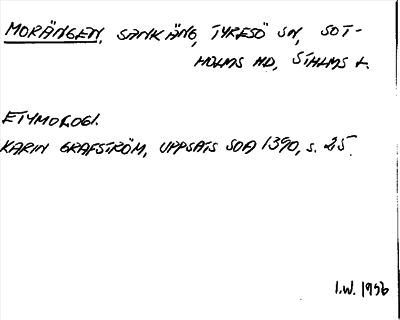 MORÄNGEN, SANKÄNG, TYRESÖ SN, SOT-
HOLMS HD, STHLMS L.
ETYMOLOGI.
KARIN GRAFSTRÖM, UPPSATS SOA 1390, s. 25.
I.W. 1956